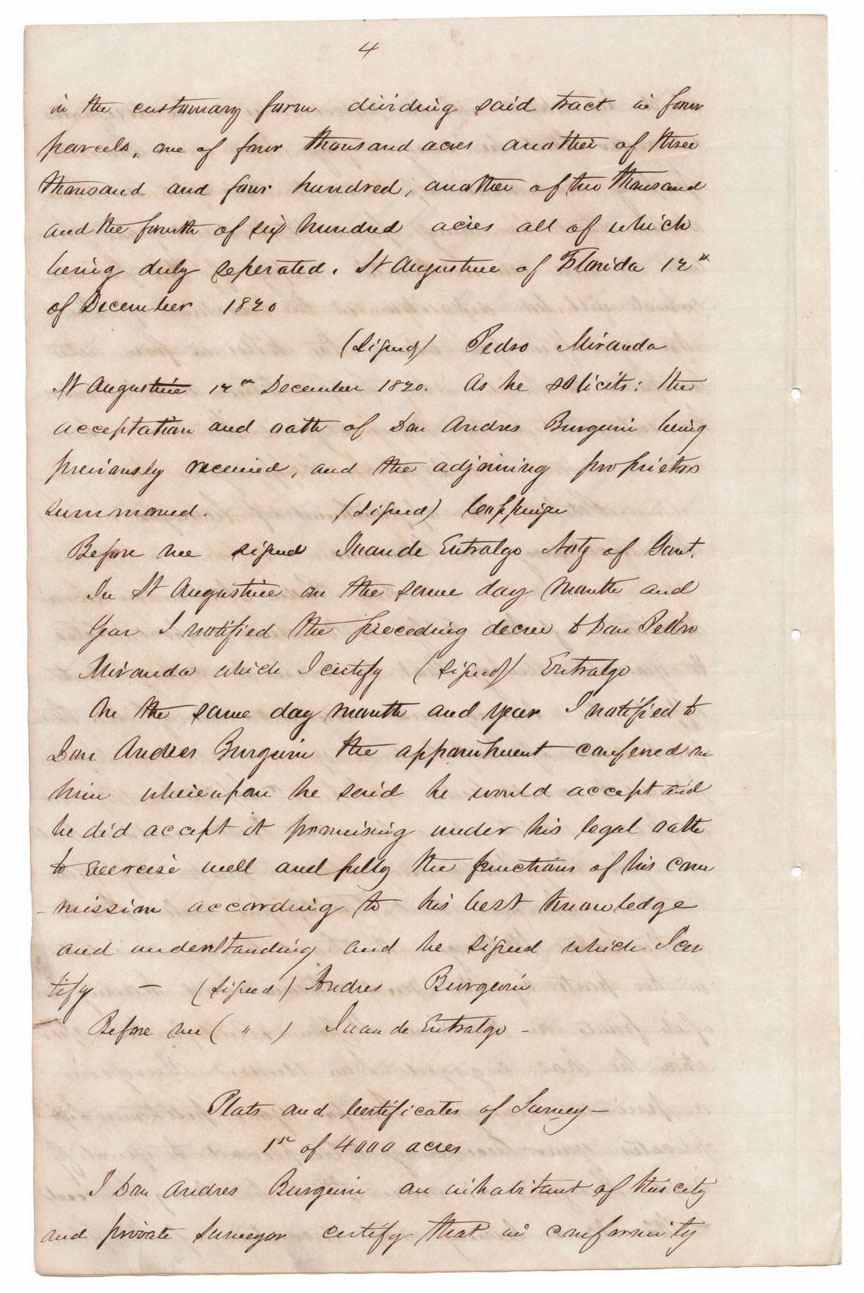 4
in the customary form dividing said tract in four
parcels, one of four thousand acres another of three
thousand and four hundred, another of two thousand
and the fourth of six hundred acres all of which
being duly seperated. St Augustine of Florida 12th
of December 1820
(signed) Pedro Miranda
St Augustine 12th December 1820. As he solicits: the
acceptation and oath of Don Andres Burgevin being
previously received, and the adjoining proprietors
summoned. (signed) Coppinger
Before me signed Juan de Entralgo Noty of Govt.
In St Augustine on the same day month and
Year I notified the preceding decree to Don Pedro
Miranda which I certify (signed) Entralgo
On the same day month and year I notified to
Don Andres Burgevin the appointment conferred on
him whereupon he said he would accept and
he did accept it promising under his legal oath
to exercise well and fully the functions of his com
-mission according to his best knowledge
and understanding and he signed which I cer
tify — (signed) Andres Burgevin
Before me ( " ) Juan de Entralgo -
Plats and Certificates of Survey —
1st of 4000 acres
I Don Andres Burgevin an inhabitant of this city
and private surveyor certify that in conformity